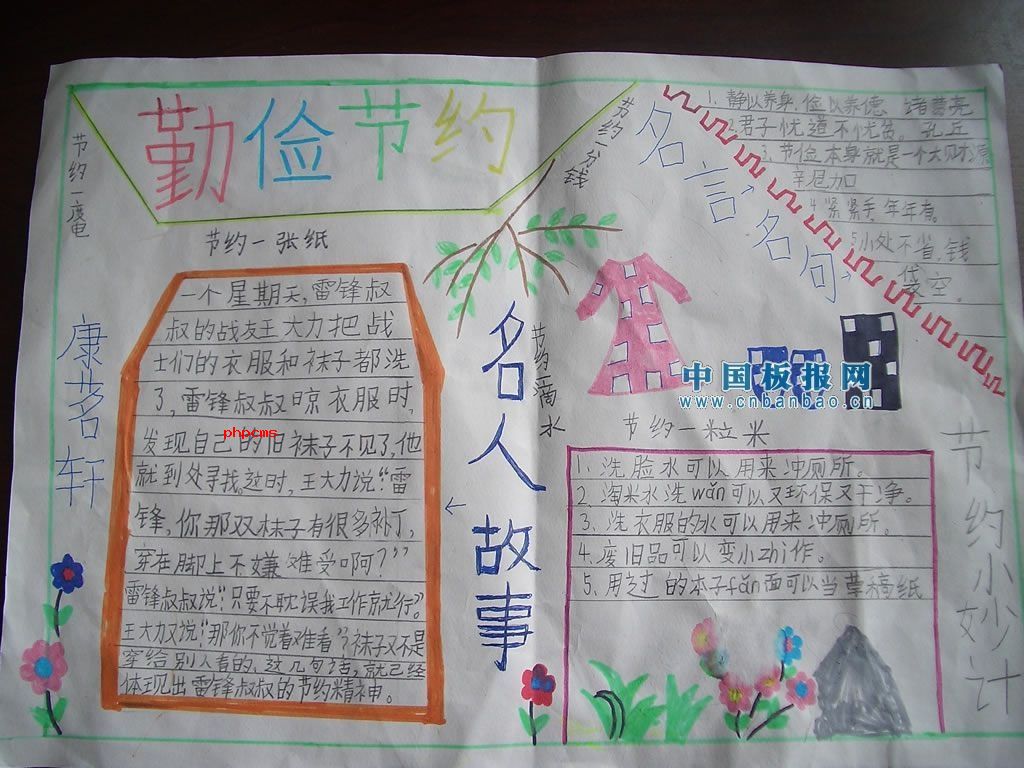 勤俭节约
节约一度电
节约一张纸
节约一分钱
康茗轩
一个星期天,雷锋叔
叔的战友王大力把战
士们的衣服和袜子都洗
了,雷锋叔叔晾衣服时,
发现自己的旧袜子不见了,他
就到处寻找。这时,王大力说:“雷
锋,你那双袜子有很多补丁,
穿在脚上不嫌难受吗?”
雷锋叔叔说:“只要不耽误我工作就行。”
王大力又说:“那你不觉着难看?”袜子又不是
穿给别人看的,这几句话,就已经
体现出雷锋叔叔的节约精神。
phpcms
←
名人故事
节约一滴水
名言名句
1、静以养身,俭以养德、诸葛亮
2、君子忧道不忧贫。孔丘
3、节俭本身就是一个大财源
辛尼加
4、紧紧手,年年有。
5、小处不省,钱
袋空。
中国板报网
www.cnbanbao.cn
节约一粒米
1、洗脸水可以用来冲厕所。
2、淘米水洗wǎn可以又环保又干净。
3、洗衣服的水可以用来冲厕所。
4、废旧品可以变小zhi作。
5、用过的本子fǎn面可以当草稿纸
节约小妙计